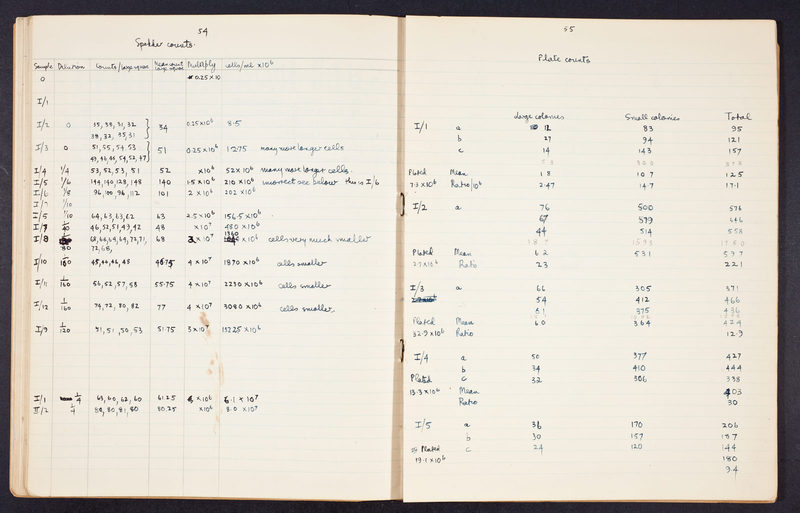 54
Spekker counts.
Sample Dilution Counts/large square Mean count large square Multiply cells/ml x10⁶
0 0.25 x 10
I/1
I/2 0 35, 39, 31, 32 34 0.25 x10⁶ 8.5
38, 32, 35, 31
I/3 0 51, 55, 54, 53 51 0.25 x10⁶ 12.75 many more longer cells
49, 46, 46, 54, 52, 47
I/4 1/4 53, 52, 53, 51 52 x10⁶ 52 x 10⁶ many more longer cells.
I/5 1/6 144, 140, 128, 148 140 1.5 x10⁶ 210 x10⁶ incorrect see below this is I/6
I/6 1/8 96, 100, 96, 112 101 2 x10⁶ 202 x10⁶
I/7 1/10
I/5 1/10 64, 63, 63, 62 63 2.5 x10⁶ 156.5 x10⁶
I/7 1/40 46, 52, 51, 49, 42 48 x10⁷ 480 x10⁶
I/8 1/80 68, 66, 64, 64, 72, 71, 68 x10⁷ 1360 x10⁶ cells very much smaller
72, 68,
I/10 1/160 45, 46, 46, 45 46.75 4 x10⁷ 1870 x10⁶ cells smaller
I/11 1/160 56, 52, 57, 58 55.75 4 x10⁷ 2230 x10⁶ cells smaller
I/12 1/160 74, 72, 80, 82 77 4 x10⁷ 3080 x10⁶ cells smaller.
I/9 1/120 51, 51, 50, 53 51.75 3 x10⁷ 1522.5 x10⁶
I/1 1/4 63, 60, 62, 60 61.25 x10⁶ 6.1 x 10⁷
II/2 1/4 80, 80, 81, 80 80.25 x10⁶ 8.0 x10⁷
55
Plate counts
Large colonies Small colonies Total
I/1 a 12 83 95
b 27 94 121
c 14 143 157
53
Plated Mean 18 107 125
7.3 x10⁶ Ratio/10⁶ 2.47 14.7 17.1
I/2 a 76 500 576
67 599 666
44 514 558
187
Plated Mean 62 531 597
2.7 x10⁶ Ratio 23 221
I/3 a 66 305 371
54 412 466
61 375 436
Plated Mean 60 364 424
32.9 x10⁶ Ratio 12.9
I/4 a 50 377 427
b 34 410 444
Plated c 32 306 338
13.3 x10⁶ Mean 403
Ratio 30
I/5 a 36 170 206
b 30 157 187
Plated c 24 120 144
19.1 x10⁶ 180
9.4